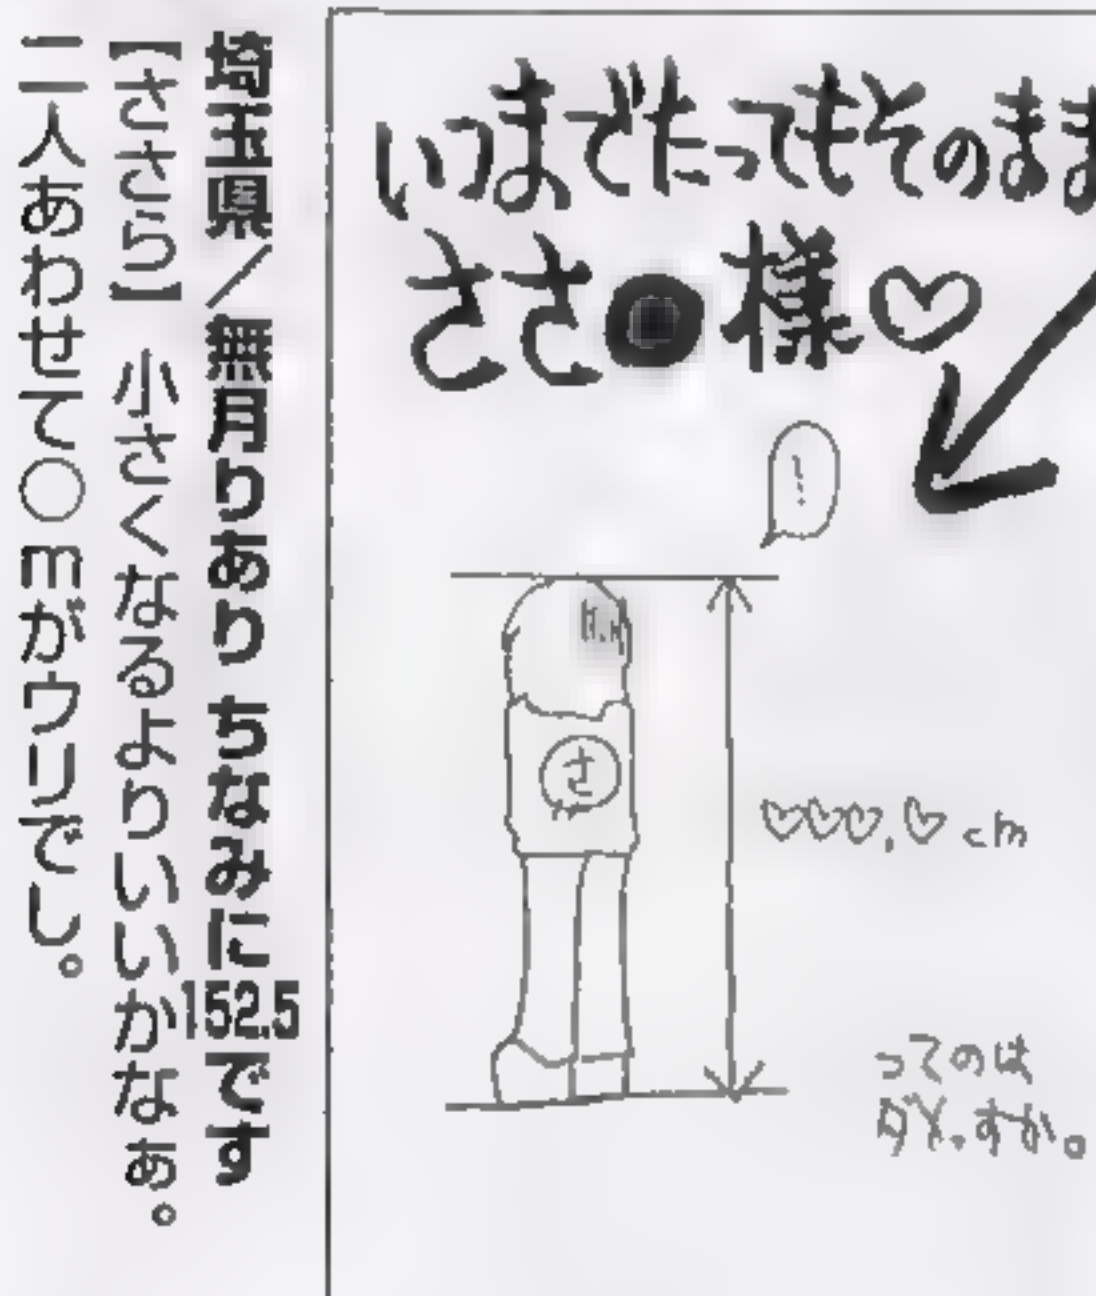 いつまでたってもそのまま
ささ●様♡
さ
♡♡♡.♡cm
ってのは
ダメ.すか。
埼玉県/無月りあり ちなみに152.5です
【ささら】小さくなるよりいいかなぁ。
二人あわせて○mがウリでし。